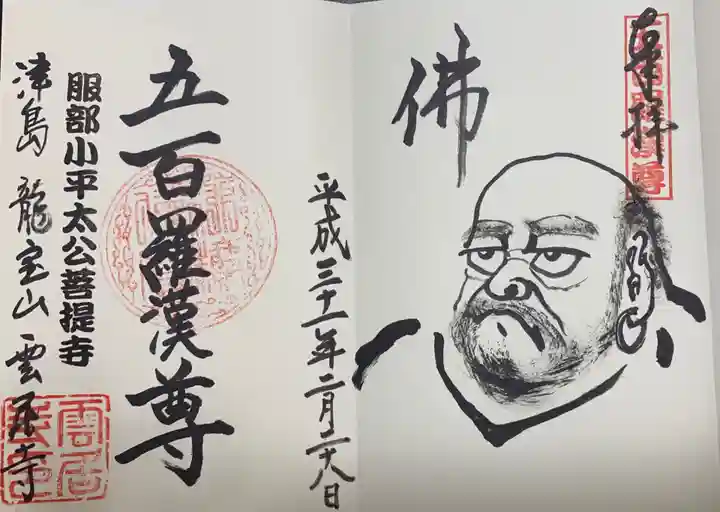 奉拝
佛
平成三十一年二月二十八日
五百羅漢尊
服部小平太公菩提寺
津島 龍宝山 雲居寺